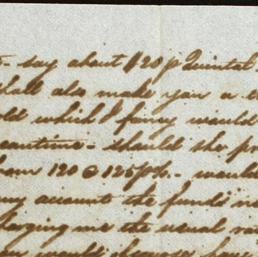 say about $20 p Quintal
shall also make you a
old which I fancy would
meantime - should she
from 120 @ 125 p% - would
my account the funds
charging me the usual
would